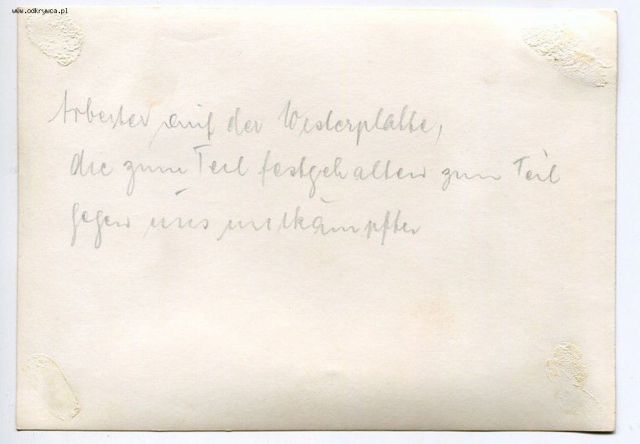 www.odkrywca.pl
Arbeiter auf der Westerplatte,
die zum Teil festgehalten zum Teil
gegen uns mitkämpften